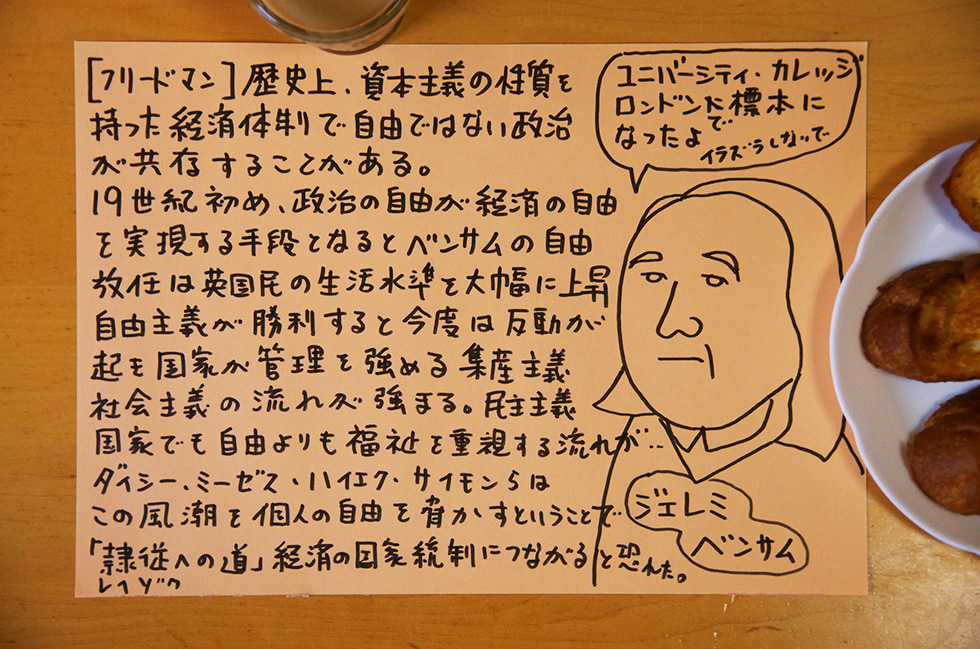 [フリードマン] 歴史上、資本主義の性質を
持った経済体制で自由ではない政治
が共存することがある。
19世紀初め、政治の自由が経済の自由
を実現する手段となるとベンサムの自由
放任は英国民の生活水準を大幅に上昇
自由主義が勝利すると今度は反動が
起き国家が管理を強める集産主義
社会主義の流れが強まる。民主主義
国家でも自由よりも福祉を重視する流れが‥
ダイシー、ミーゼス・ハイエク・サイモンらは
この風潮を個人の自由を脅かすということで
「隷従への道」経済の国家統制につながると恐れた。
レイゾク
ユニバーシティ・カレッジ
ロンドンで標本に
なったよ
イラズラしなって
ジェレミ
ベンサム